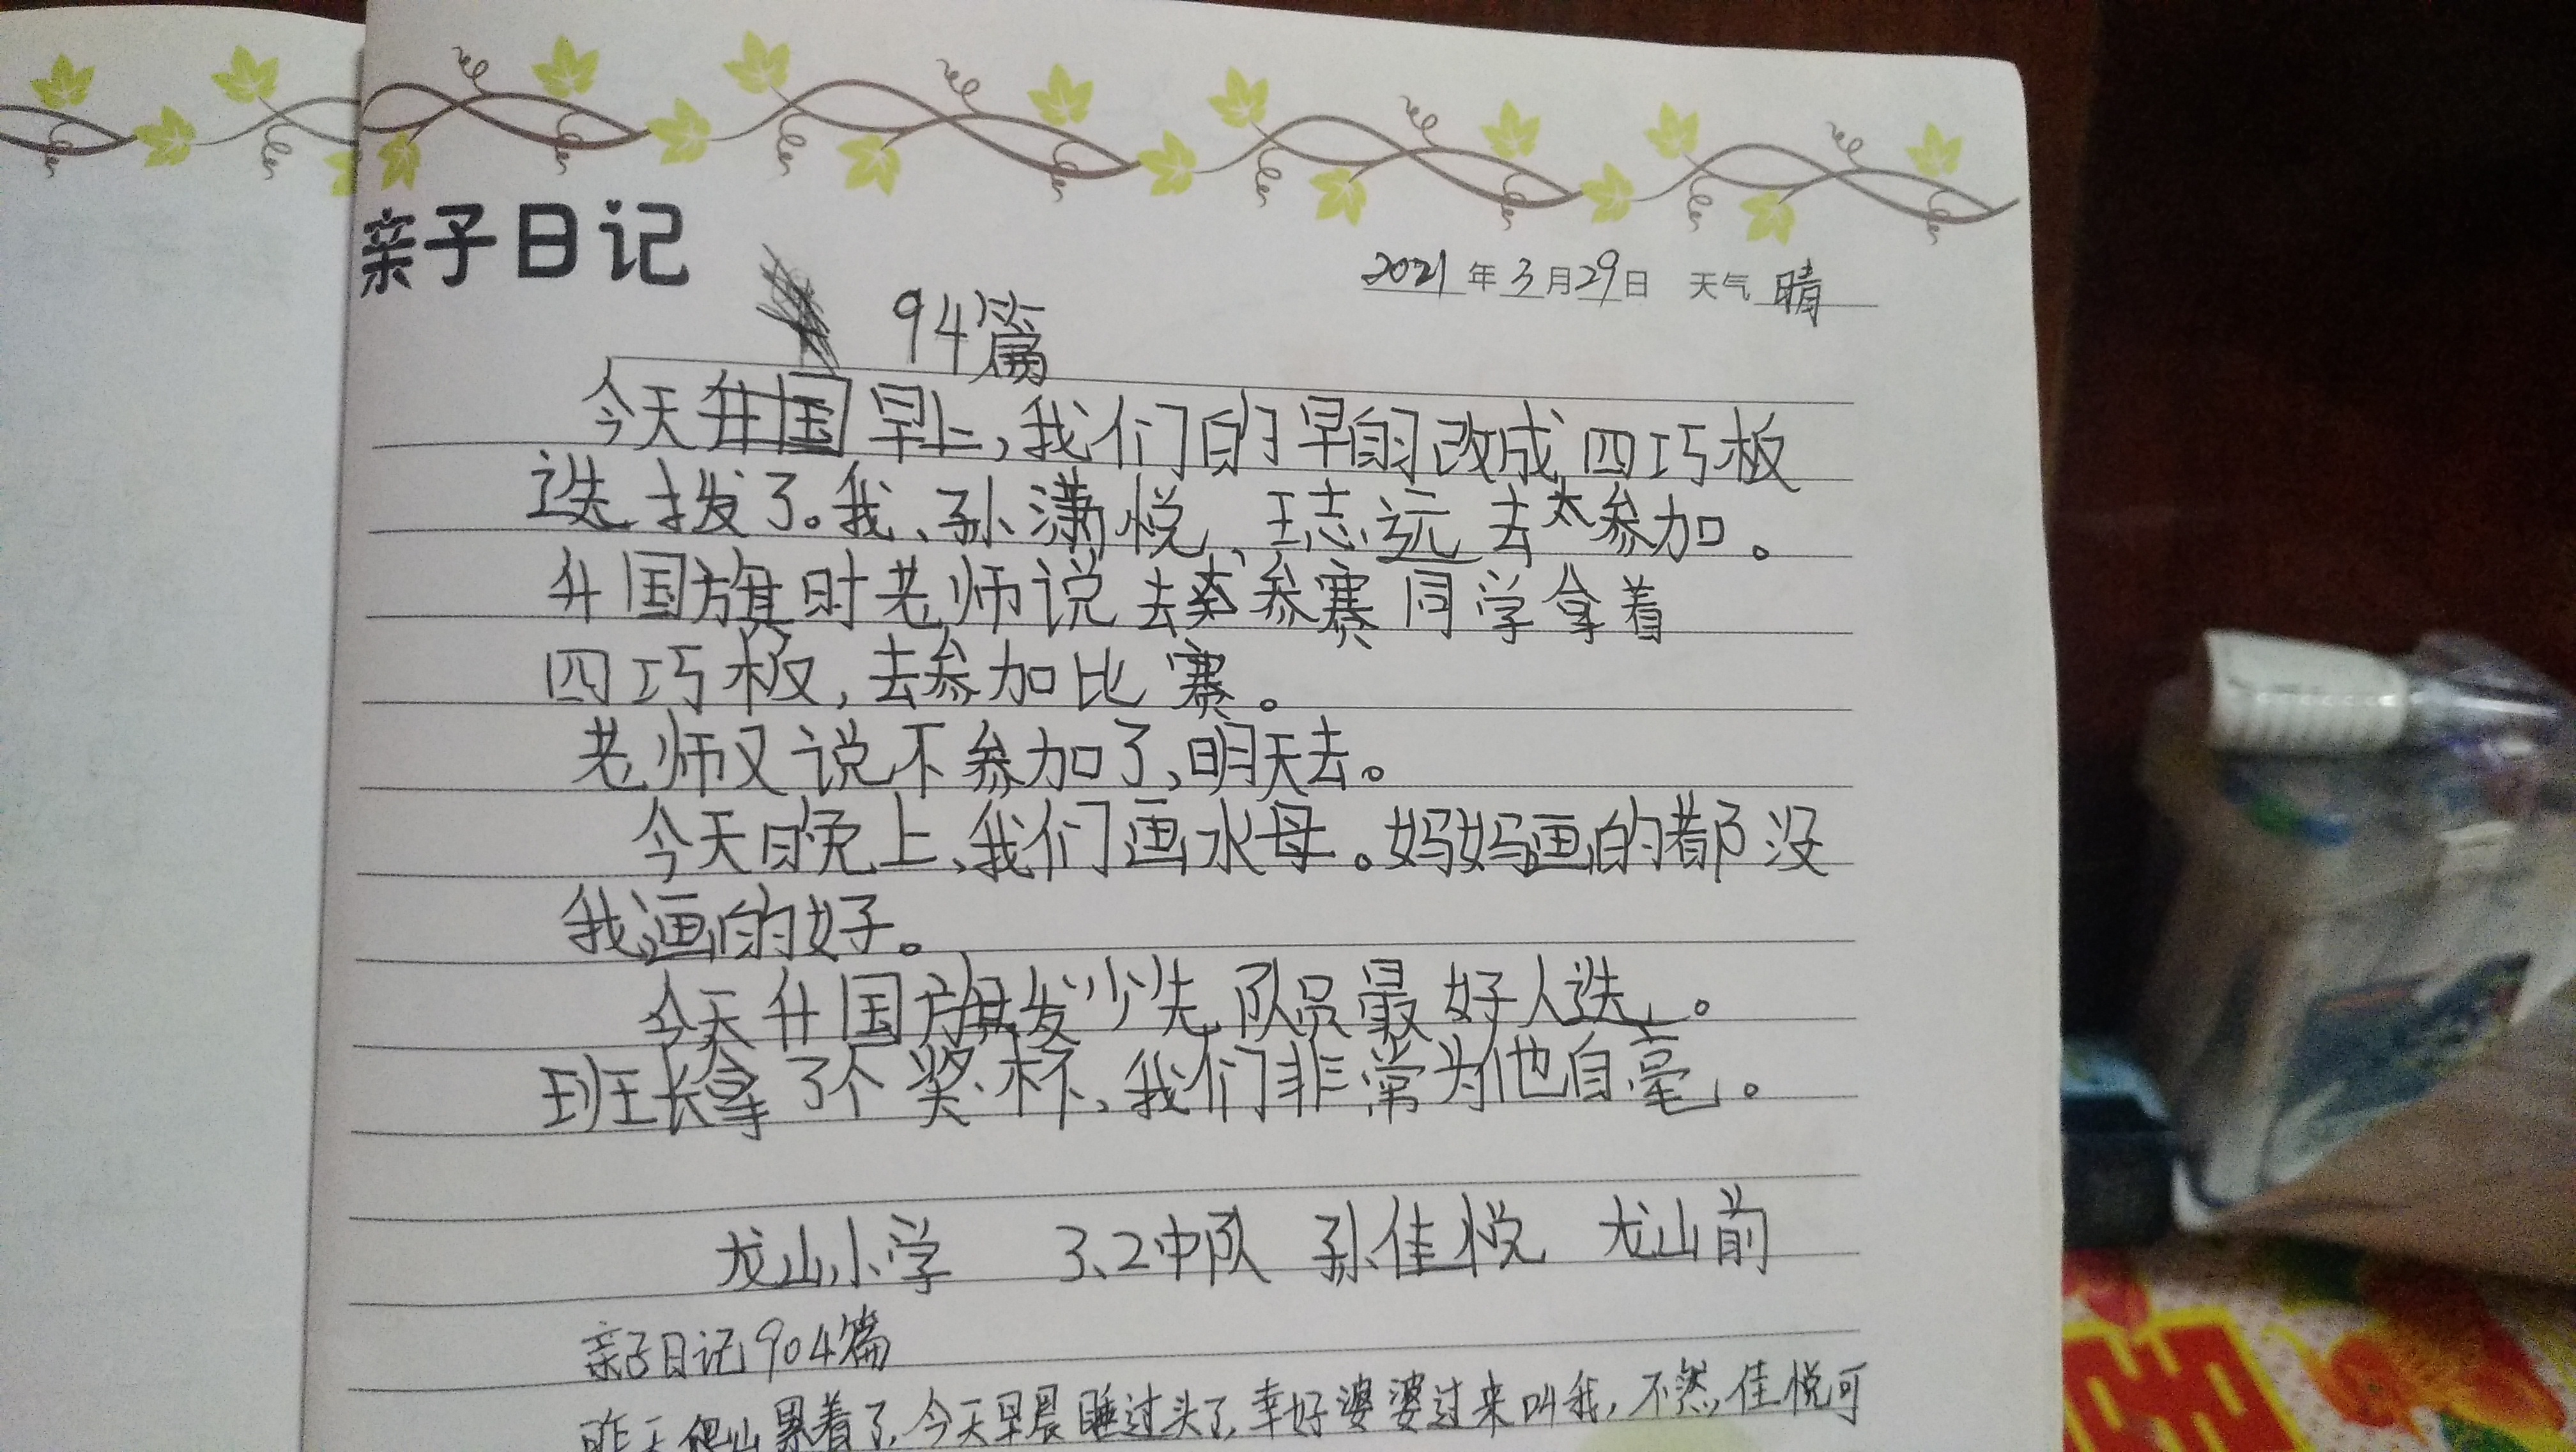 亲子日记
2021年3月29日 天气 晴
94篇
今天升国早上,我们的早自习改成四巧板
选拔了。我、孙潇悦、王志远去参加。
升国旗时老师说去参赛同学拿着
四巧板,去参加比赛。
老师又说不参加了,明天去。
今天晚上、我们画水母。妈妈画的都没
我画的好。
今天升国旗发少先队员最好人选。
班长拿了个奖杯、我们非常为他自毫。
龙山小学 3、2中队 孙佳悦 龙山前
亲子日记904篇
昨天爬山累着了,今天早晨睡过头了,幸好婆婆过来叫我,不然,佳悦可